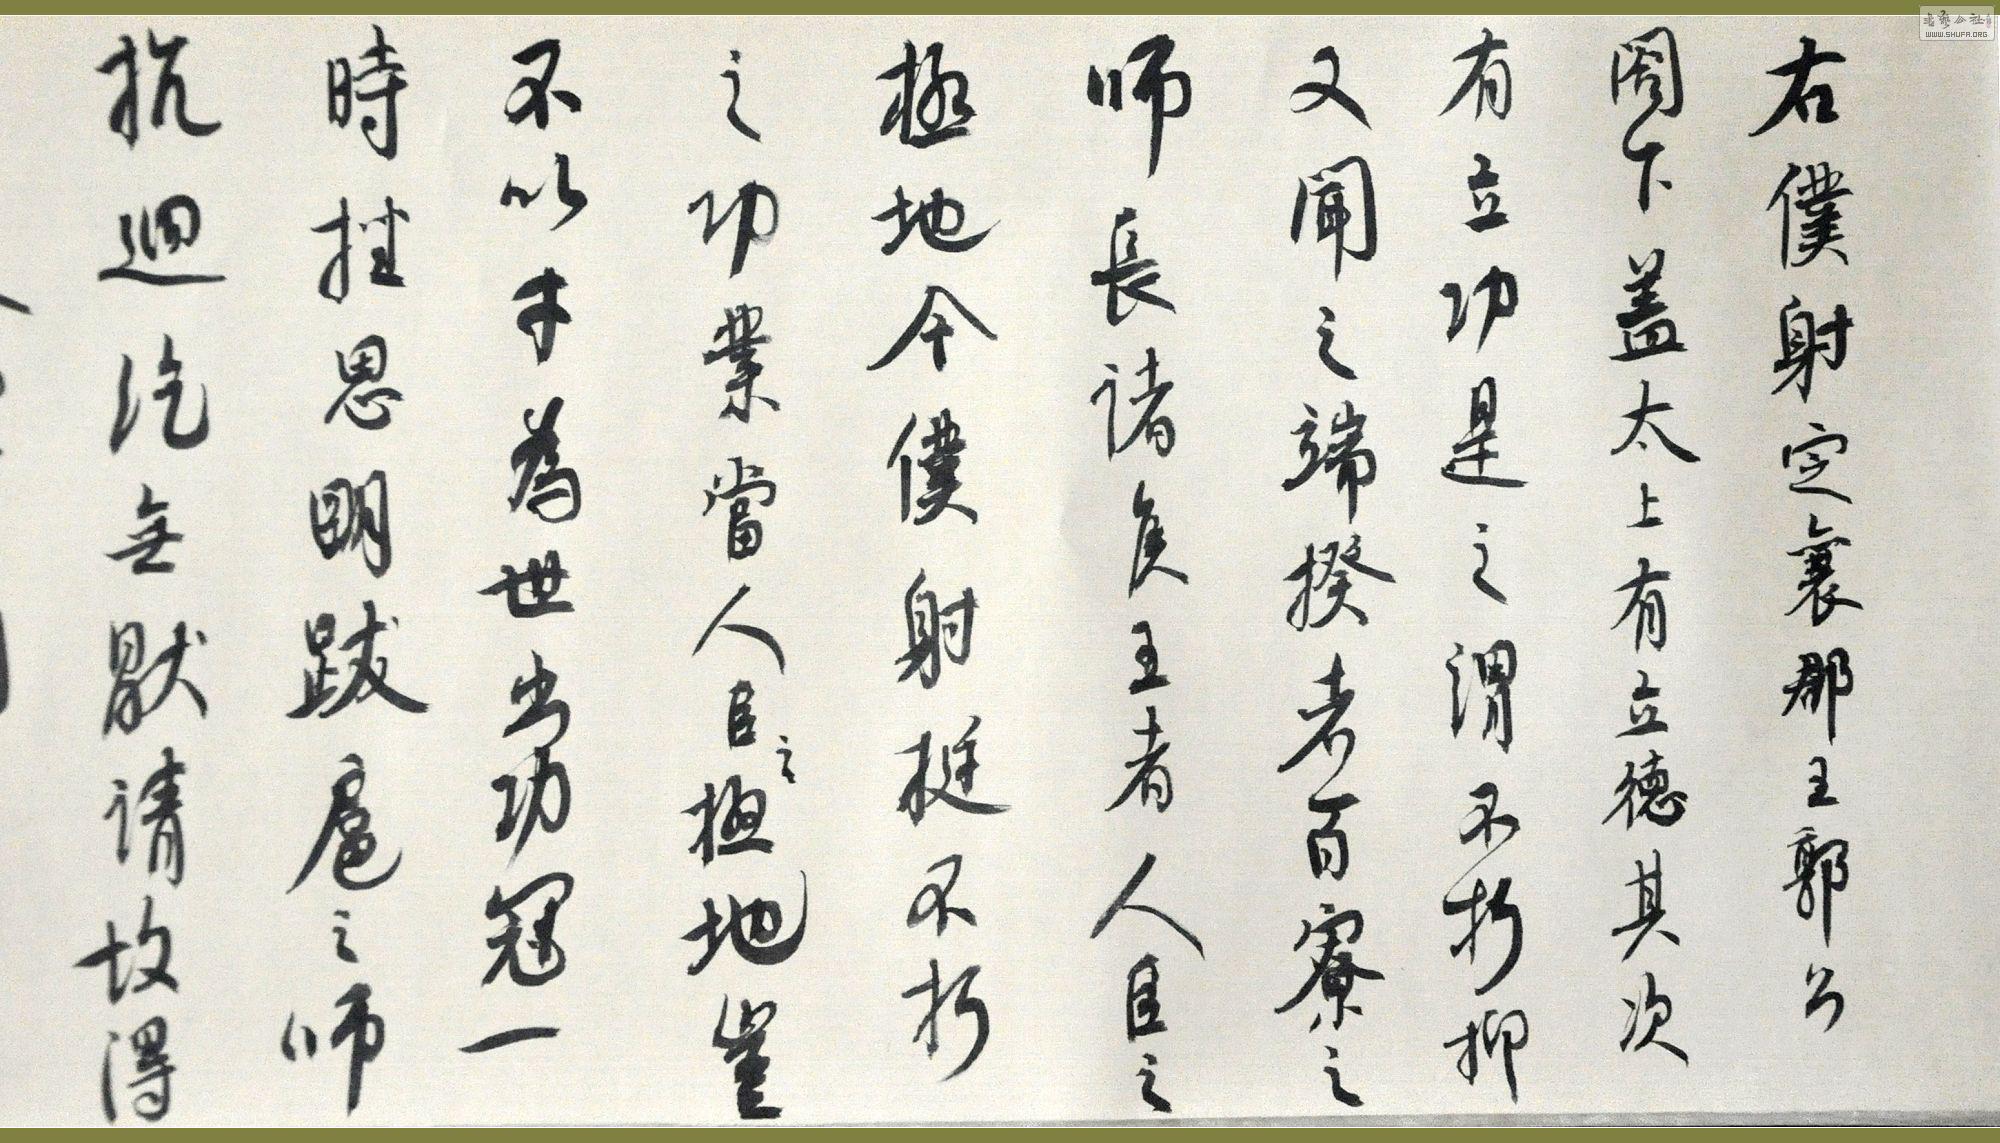 右僕射定襄郡王郭公
閤下蓋太上有立德其次
有立功是之謂不朽抑
又聞之端揆者百寮之
師長諸侯王者人臣之
極地今僕射挺不朽
之功業當人臣之極地豈
不以才為世出功冠一
時挫思明跋扈之師
抗迴紇無厭請故得
WWW.SHUFA.ORG